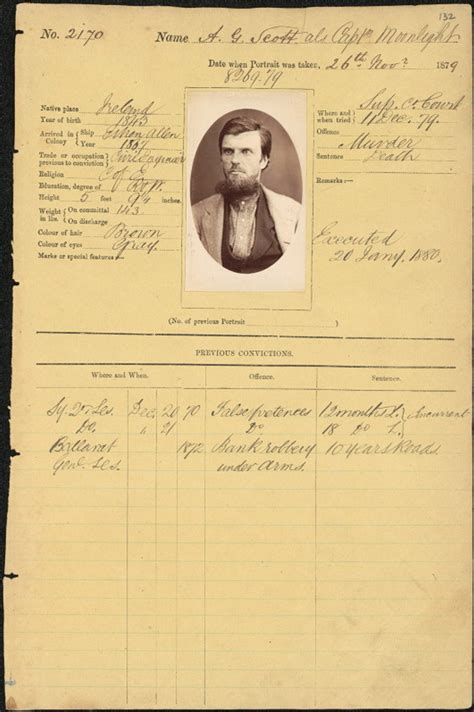 132
No. 2170 Name A. G. Scott als Captn Moonlight
Date when Portrait was taken, 26th Novr 1879
8269.79
Native place Ireland
Year of birth 1843
Arrived in Colony Ship Ethan Allen
Year 1867
Trade or occupation previous to conviction Civil Engineer
Religion C of E
Education, degree of R & W
Height 5 feet 9¼ inches
Weight in lbs. On committal 143
On discharge
Colour of hair Brown
Colour of eyes Gray
Marks or special features
Where and when tried Sup. Ct. Court
11 Dec. 79.
Offence
Murder
Sentence Death
Remarks:—
Executed
20 Jany. 1880.
(No. of previous Portrait )
PREVIOUS CONVICTIONS.
Where and When. Offence. Sentence.
Sy. Qr. Ses. Dec. 20 70 False pretences 12 months L. Concurrent
Do. „ 21 Do 18 Do L.
Ballarat 1872 Bank robbery 10 years Roads.
Genl. Ses. under Arms.